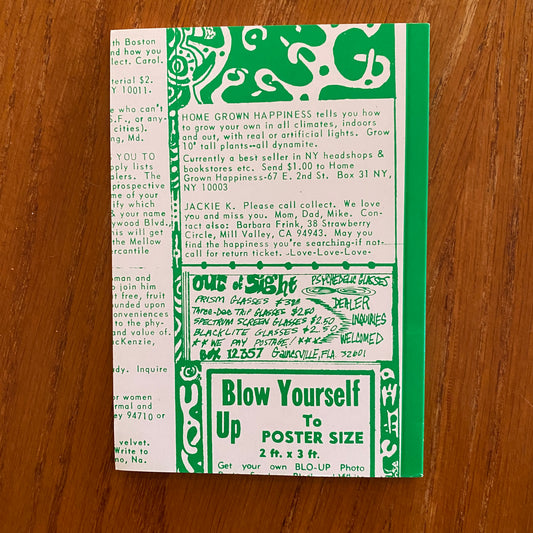 th Boston
nd how you
lect. Carol.
terial $2.
Y 10011.
e who can't
S.F., or any-
cities).
ng, Md.
YOU TO
pply lists
alers. The
prospective
me of your
ify which
& your name
ywood Blvd.,
his will get
the Mellow
ercantile
man and
o join him
t free, fruit
ounded upon
onveniences
to the phy-
and value of.
acKenzie,
dy. Inquire
or women
rmal and
ey 94710 or
velvet.
Write to
no, Na.
HOME GROWN HAPPINESS tells you how
to grow your own in all climates, indoors
and out, with real or artificial lights. Grow
10' tall plants--all dynamite.
Currently a best seller in NY headshops &
bookstores etc. Send $1.00 to Home
Grown Happiness-67 E. 2nd St. Box 31 NY,
NY 10003
JACKIE K. Please call collect. We love
you and miss you. Mom, Dad, Mike. Con-
tact also: Barbara Frink, 38 Strawberry
Circle, Mill Valley, CA 94943. May you
find the happiness you're searching-if not-
call for return ticket. -Love-Love-Love-
OUR of Sight
PSYCHEDELIC GLASSES
DEALER
INQUIRIES
WELCOMED
PRISM GLASSES
THREE-DEE TRIP GLASSES $2.50
SPECTRUM SCREEN GLASSES $2.50
BLACKLITE GLASSES $2.50
** WE PAY POSTAGE! ****
BOX 12357 Gainesville, FLA. 32601
Blow Yourself
Up To
POSTER SIZE
2 ft. x 3 ft.
Get your own BLO-UP Photo